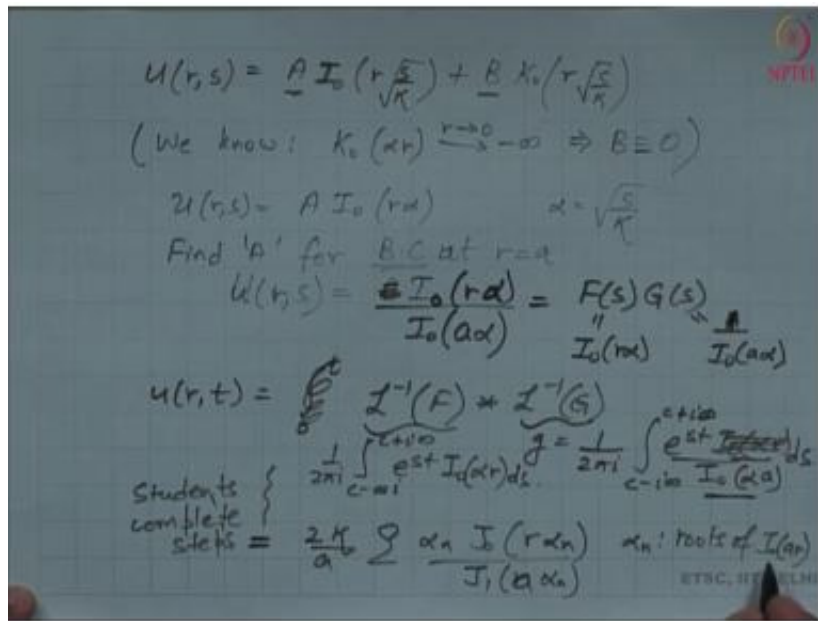 NPTEL
u(r,s) = A I₀(r√(s/K)) + B K₀(r√(s/K))
(We know: K₀(αr) —r→0→ -∞ ⇒ B ≡ 0)
u(r,s) = A I₀(rα)    α = √(s/K)
Find 'A' for BC at r=a
U(r,s) = I₀(rα)/I₀(aα) = F(s) G(s)
I₀(rα)    1/I₀(aα)
u(r,t) = L⁻¹(F) * L⁻¹(G)
1/2πi ∫_{c-∞i}^{c+i∞} e^{st} I₀(αr) ds    g = 1/2πi ∫_{c-i∞}^{c+i∞} e^{st}/I₀(αa) ds
Students
complete
steps = 2K/a Σ αₙ J₀(rαₙ)/J₁(aαₙ)    αₙ: roots of I(ar)
ETSC, IIT DELHI